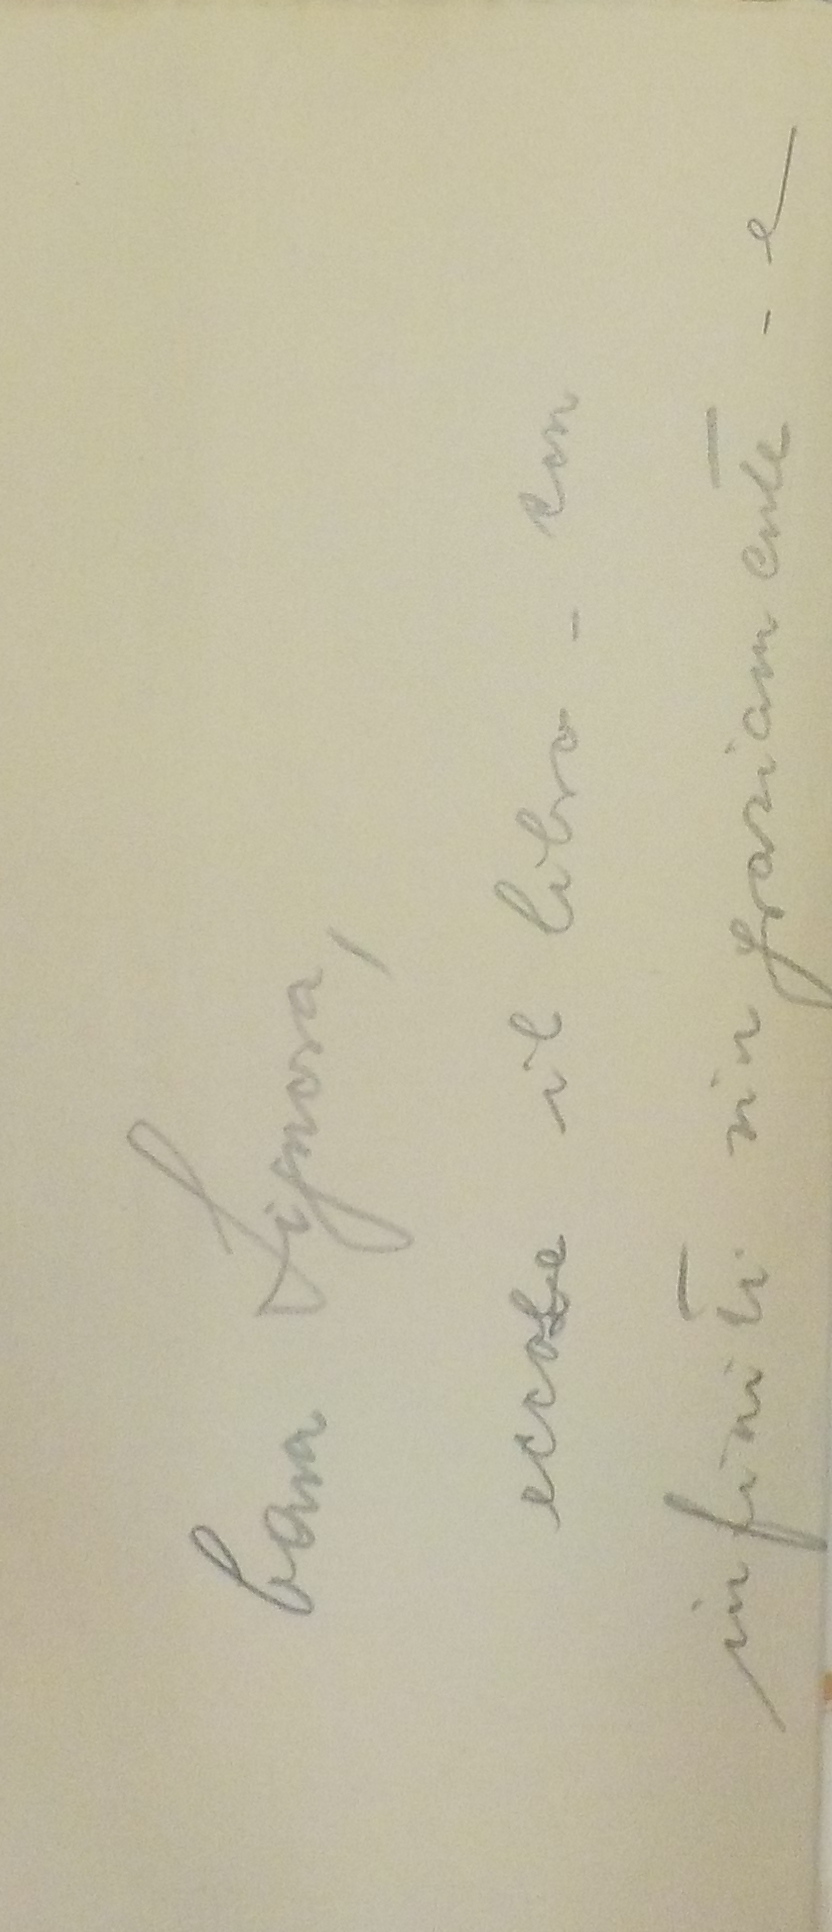 Cara Signora,
eccole il libro - con
infiniti ringraziamenti - e